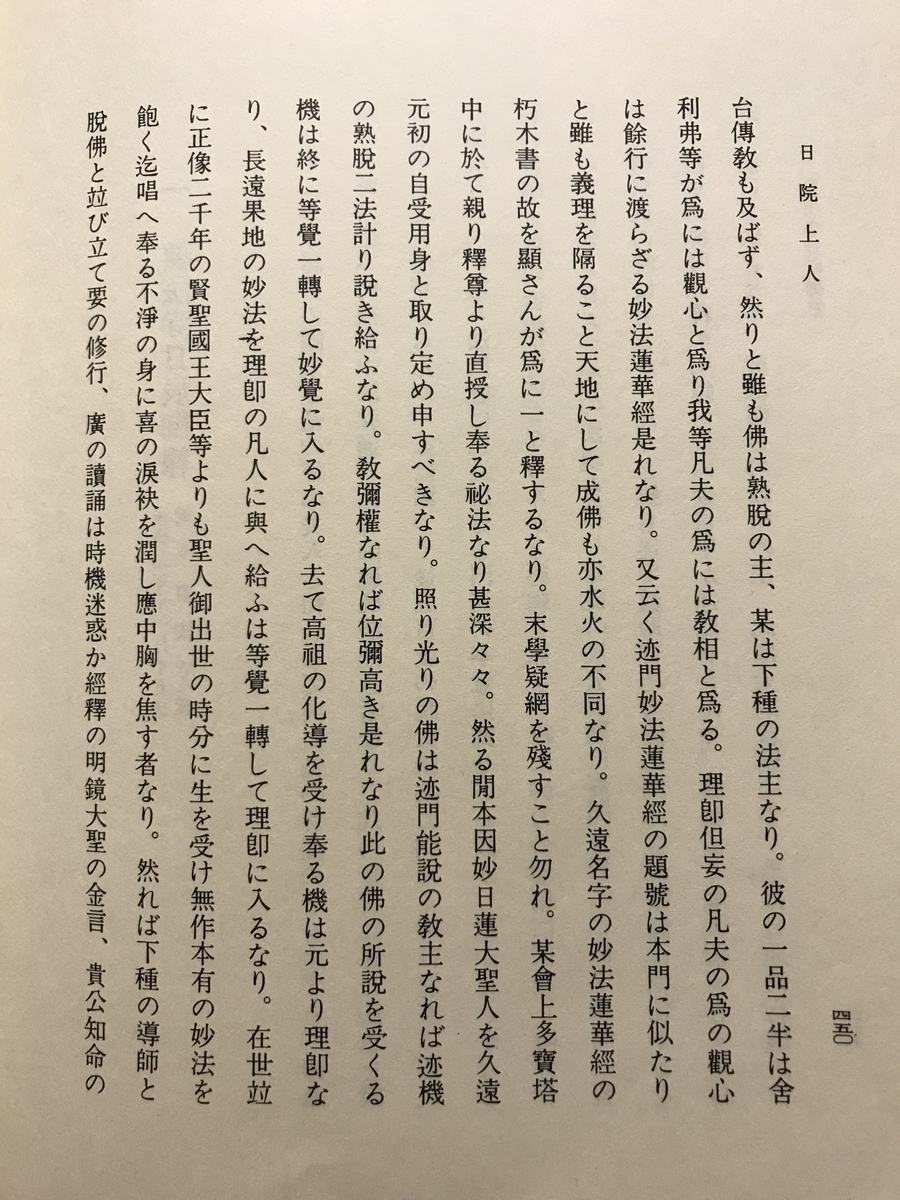 日院上人
台傳敎も及ばず、然りと雖も佛は熟脫の主、某は下種の法主なり。彼の一品二半は舍
利弗等が爲には觀心と爲り我等凡夫の爲には敎相と爲る。理卽但妄の凡夫の爲の觀心
は餘行に渡らざる妙法蓮華經是れなり。又云く迹門妙法蓮華經の題號は本門に似たり
と雖も義理を隔ること天地にして成佛も亦水火の不同なり。久遠名字の妙法蓮華經の
朽木書の故を顯さんが爲に一と釋するなり。末學疑網を殘すこと勿れ。某會上多寶塔
中に於て親り釋尊より直授し奉る祕法なり甚深々々。然る閒本因妙日蓮大聖人を久遠
元初の自受用身と取り定め申すべきなり。照り光りの佛は迹門能說の敎主なれば迹機
の熟脫二法計り說き給ふなり。敎彌權なれば位彌高き是れなり此の佛の所說を受くる
機は終に等覺一轉して妙覺に入るなり。去て高祖の化導を受け奉る機は元より理卽な
り、長遠果地の妙法を理卽の凡人に與へ給ふは等覺一轉して理卽に入るなり。在世竝
に正像二千年の賢聖國王大臣等よりも聖人御出世の時分に生を受け無作本有の妙法を
飽く迄唱へ奉る不淨の身に喜の淚袂を潤し應中胸を焦す者なり。然れば下種の導師と
脫佛と竝び立て要の修行、廣の讀誦は時機迷惑か經釋の明鏡大聖の金言、貴公知命の
四五〇